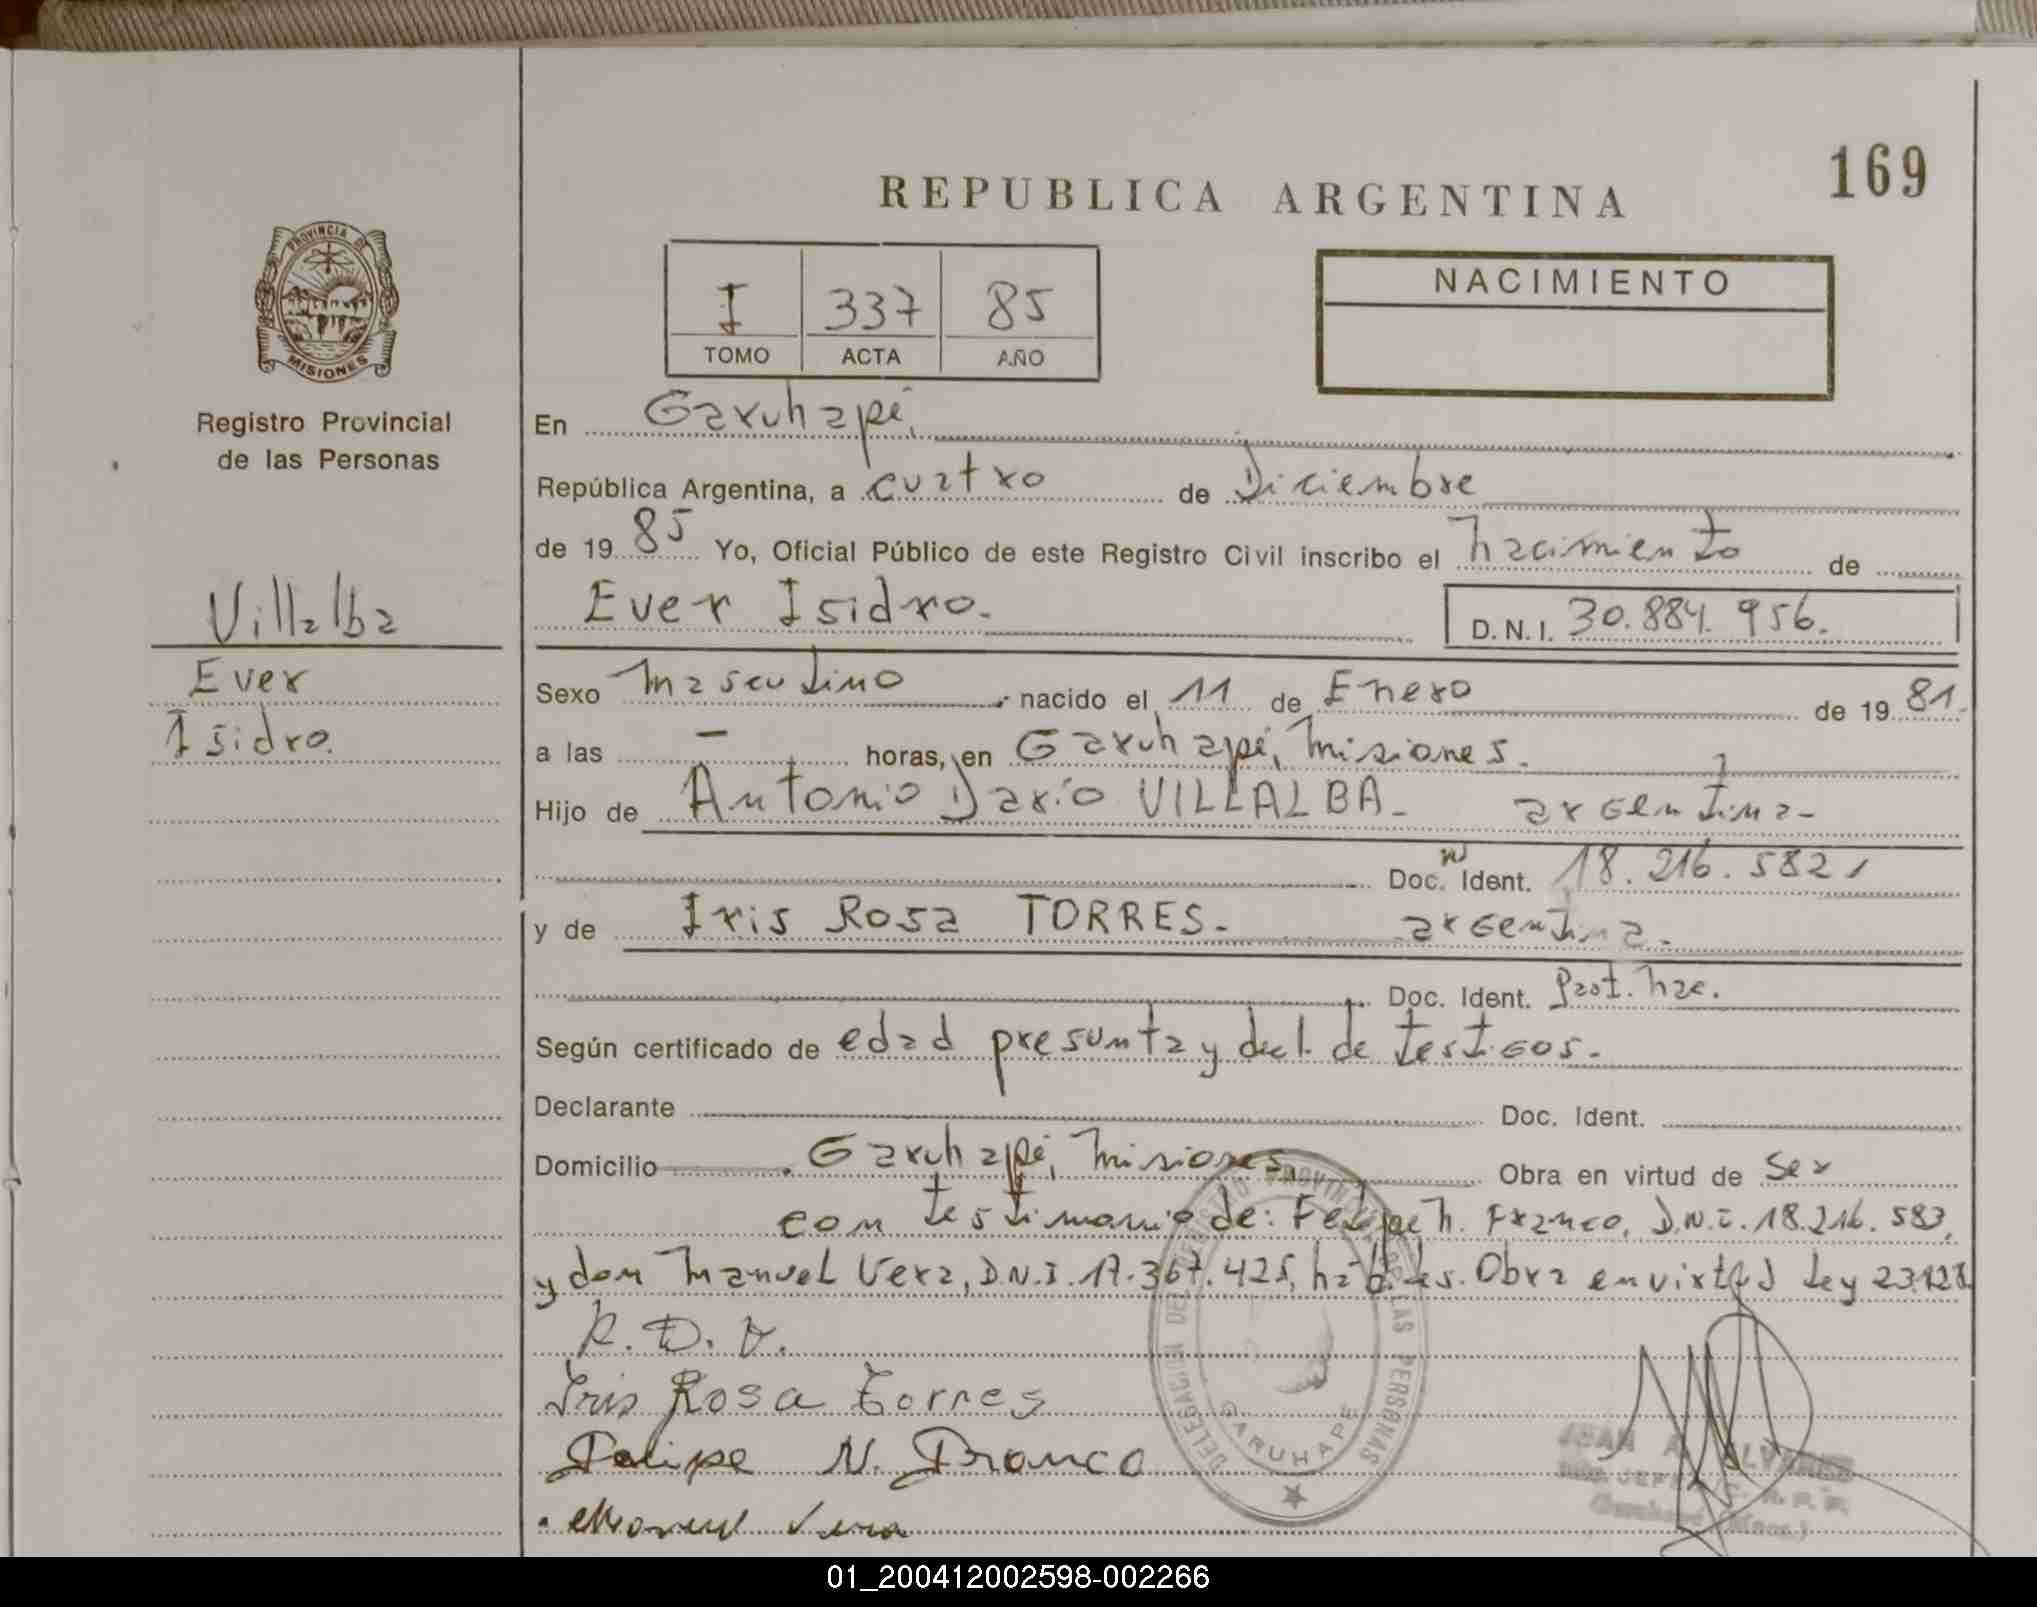 169
REPUBLICA ARGENTINA
PROVINCIA DE
MISIONES
Registro Provincial
de las Personas
I 337 85
TOMO ACTA AÑO
NACIMIENTO
En Garuhapé,
República Argentina, a cuatro de Diciembre
de 19 85 Yo, Oficial Público de este Registro Civil inscribo el nacimiento de
Ever Isidro.- D.N.I. 30.884.956.
Villalba
Ever
Isidro.
Sexo masculino nacido el 11 de Enero de 19 81.
a las - horas, en Garuhapé, Misiones.
Hijo de Antonio Darío VILLALBA.- argentina-
Doc. Ident. 18.216.582
y de Iris Rosa TORRES.- argentina.
Doc. Ident. Part. nac.
Según certificado de edad presunta y decl. de testigos.-
Declarante Doc. Ident.
Domicilio Garuhapé, Misiones. Obra en virtud de Ser
con testimonio de: Felipe N. Franco, D.N.I. 18.216.583,
y don Manuel Vera, D.N.I. 17.367.425, hábiles. Obra en virtud Ley 23.128
R.D.V.
Iris Rosa Torres
Felipe N. Franco
Manuel Vera
DELEGACION DEL REGISTRO PROVINCIAL DE LAS PERSONAS
GARUHAPE
JUAN A. ALVAREZ
01_200412002598-002266